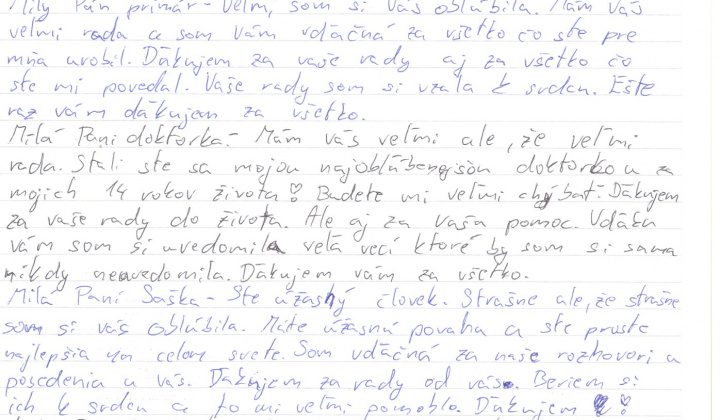 Milý Pán primár - Veľmi, som si Vás obľúbila. Mám Vás
veľmi rada a som Vám vďačná za všetko čo ste pre
mňa urobil. Ďakujem za vaše rady aj za všetko čo
ste mi povedal. Vaše rady som si vzala k srdcu. Ešte
raz vám ďakujem za všetko.
Milá Pani doktorka - Mám vás veľmi ale, že veľmi
rada. Stali ste sa mojou najobľúbenejšou doktorkou za
mojich 14 rokov života ♡ Budete mi veľmi chýbať. Ďakujem
za vaše rady do života. Ale aj za Vašu pomoc. Vďaka
vám som si uvedomila veľa vecí ktoré by som si sama
nikdy neuvedomila. Ďakujem vám za všetko.
Milá Pani Saška - Ste úžasný človek. Strašne ale, že strašne
som si vás obľúbila. Máte úžasnú povahu a ste proste
najlepšia na celom svete. Som vďačná za naše rozhovori a
posedenia u vás. Ďakujem za rady od vás. Beriem si
ich k srdcu a to mi veľmi pomohlo. Ďakujem ♡